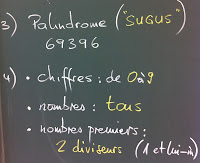 3) Palindrome ("SUGUS")
69396
4) • chiffres : de 0 à 9
• nombres : tous
• nombres premiers :
2 diviseurs (1 et lui-m)